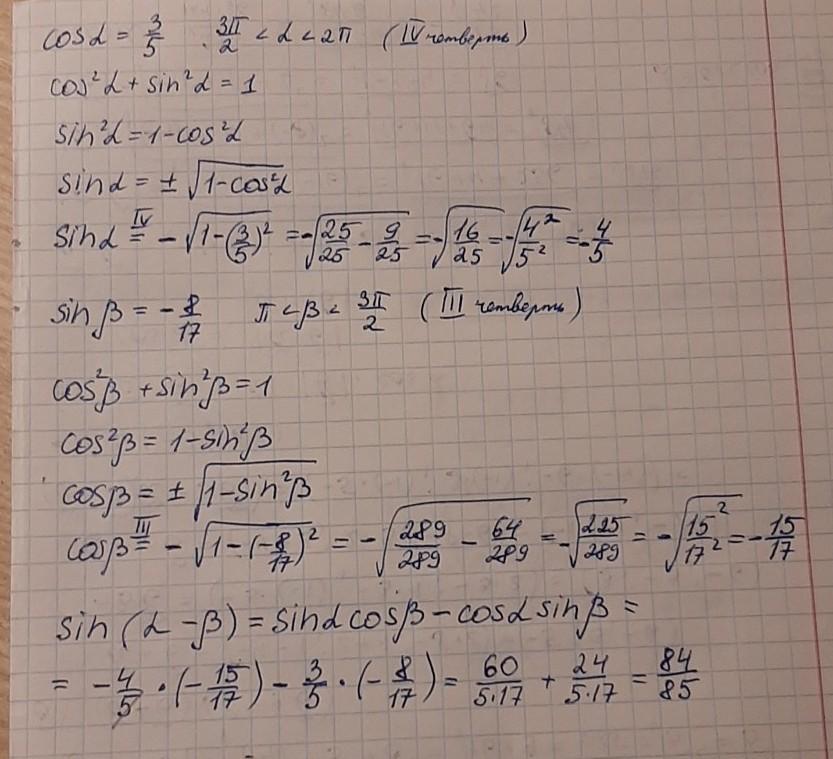 cosα = 3/5 . 3π/2 < α < 2π (IV четверть)
cos²α + sin²α = 1
sin²α = 1 - cos²α
sinα = ± √(1 - cos²α)
sinα =^IV - √(1 - (3/5)²) = -√(25/25 - 9/25) = -√(16/25) = -√(4²/5²) = -4/5
sinβ = - 8/17 π < β < 3π/2 (III четверть)
cos²β + sin²β = 1
cos²β = 1 - sin²β
cosβ = ± √(1 - sin²β)
cosβ =^III - √(1 - (-8/17)²) = - √(289/289 - 64/289) = -√(225/289) = -√(15²/17²) = -15/17
sin(α - β) = sinα cosβ - cosα sinβ =
= -4/5 · (-15/17) - 3/5 · (-8/17) = 60/5·17 + 24/5·17 = 84/85